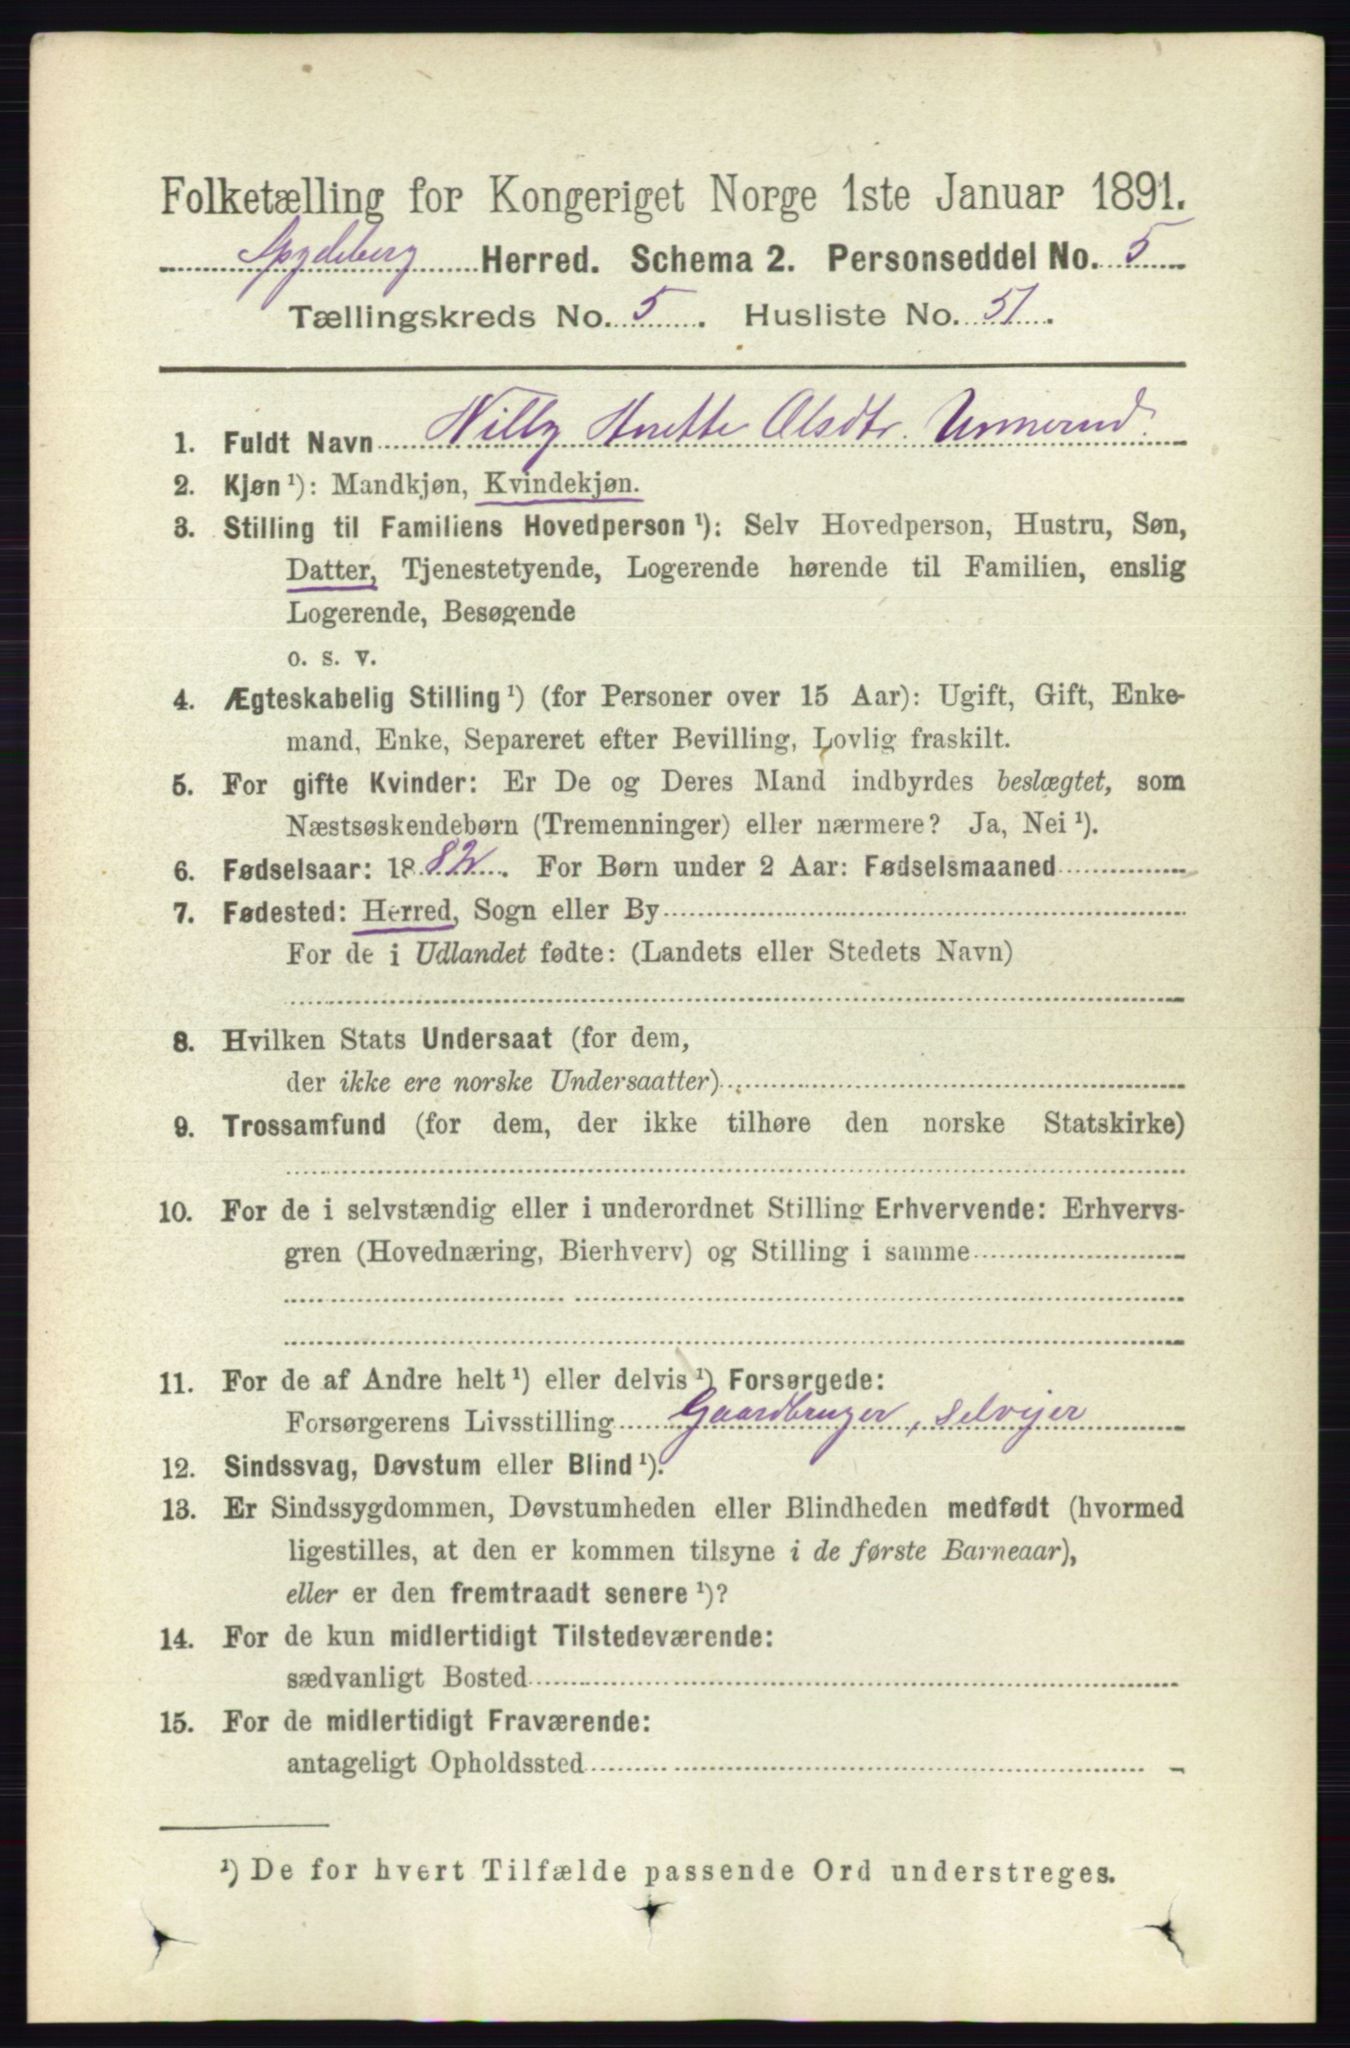 Folketælling for Kongeriget Norge 1ste Januar 1891.
Spydeberg Herred. Schema 2. Personseddel No. 5
Tællingskreds No. 5. Husliste No. 51.
1. Fuldt Navn Olsdtr.
2. Kjøn ¹): Mandkjøn, Kvindekjøn.
3. Stilling til Familiens Hovedperson ¹): Selv Hovedperson, Hustru, Søn,
Datter, Tjenestetyende, Logerende hørende til Familien, enslig
Logerende, Besøgende
o. s. v.
4. Ægteskabelig Stilling ¹) (for Personer over 15 Aar): Ugift, Gift, Enke-
mand, Enke, Separeret efter Bevilling, Lovlig fraskilt.
5. For gifte Kvinder: Er De og Deres Mand indbyrdes beslægtet, som
Næstsøskendebørn (Tremenninger) eller nærmere? Ja, Nei ¹).
6. Fødselsaar: 1882. For Børn under 2 Aar: Fødselsmaaned
7. Fødested: Herred, Sogn eller By
For de i Udlandet fødte: (Landets eller Stedets Navn)
8. Hvilken Stats Undersaat (for dem,
der ikke ere norske Undersaatter)
9. Trossamfund (for dem, der ikke tilhøre den norske Statskirke)
10. For de i selvstændig eller i underordnet Stilling Erhvervende: Erhvervs-
gren (Hovednæring, Bierhverv) og Stilling i samme
11. For de af Andre helt ¹) eller delvis ¹) Forsørgede:
Forsørgerens Livsstilling Gaardbruger, selvejer
12. Sindssvag, Døvstum eller Blind ¹).
13. Er Sindssygdommen, Døvstumheden eller Blindheden medfødt (hvormed
ligestilles, at den er kommen tilsyne i de første Barneaar),
eller er den fremtraadt senere ¹)?
14. For de kun midlertidigt Tilstedeværende:
sædvanligt Bosted
15. For de midlertidigt Fraværende:
antageligt Opholdssted
¹) De for hvert Tilfælde passende Ord understreges.